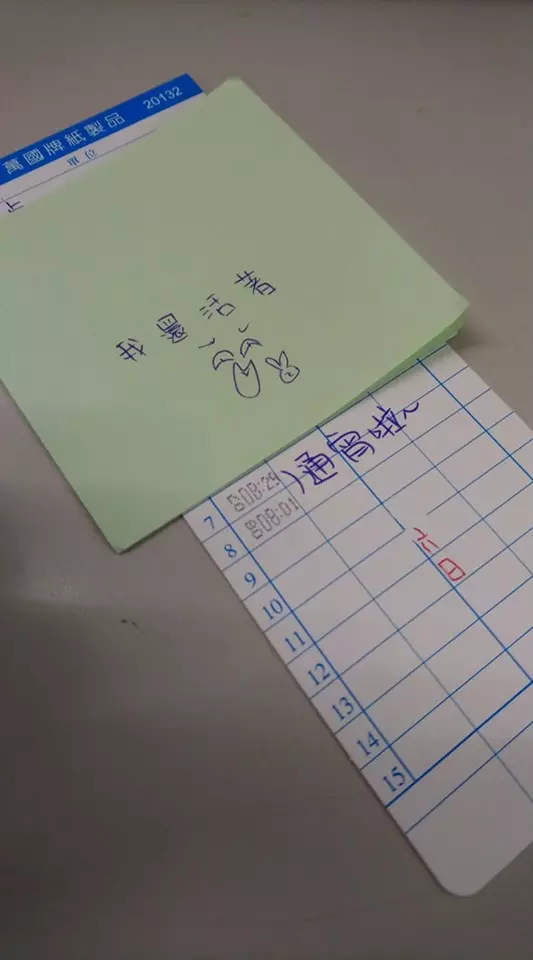 萬國牌紙製品 20132
單位
我還活著
通宵啦~
7 08:29
8 08:01
9
10
11
12
13
14
15